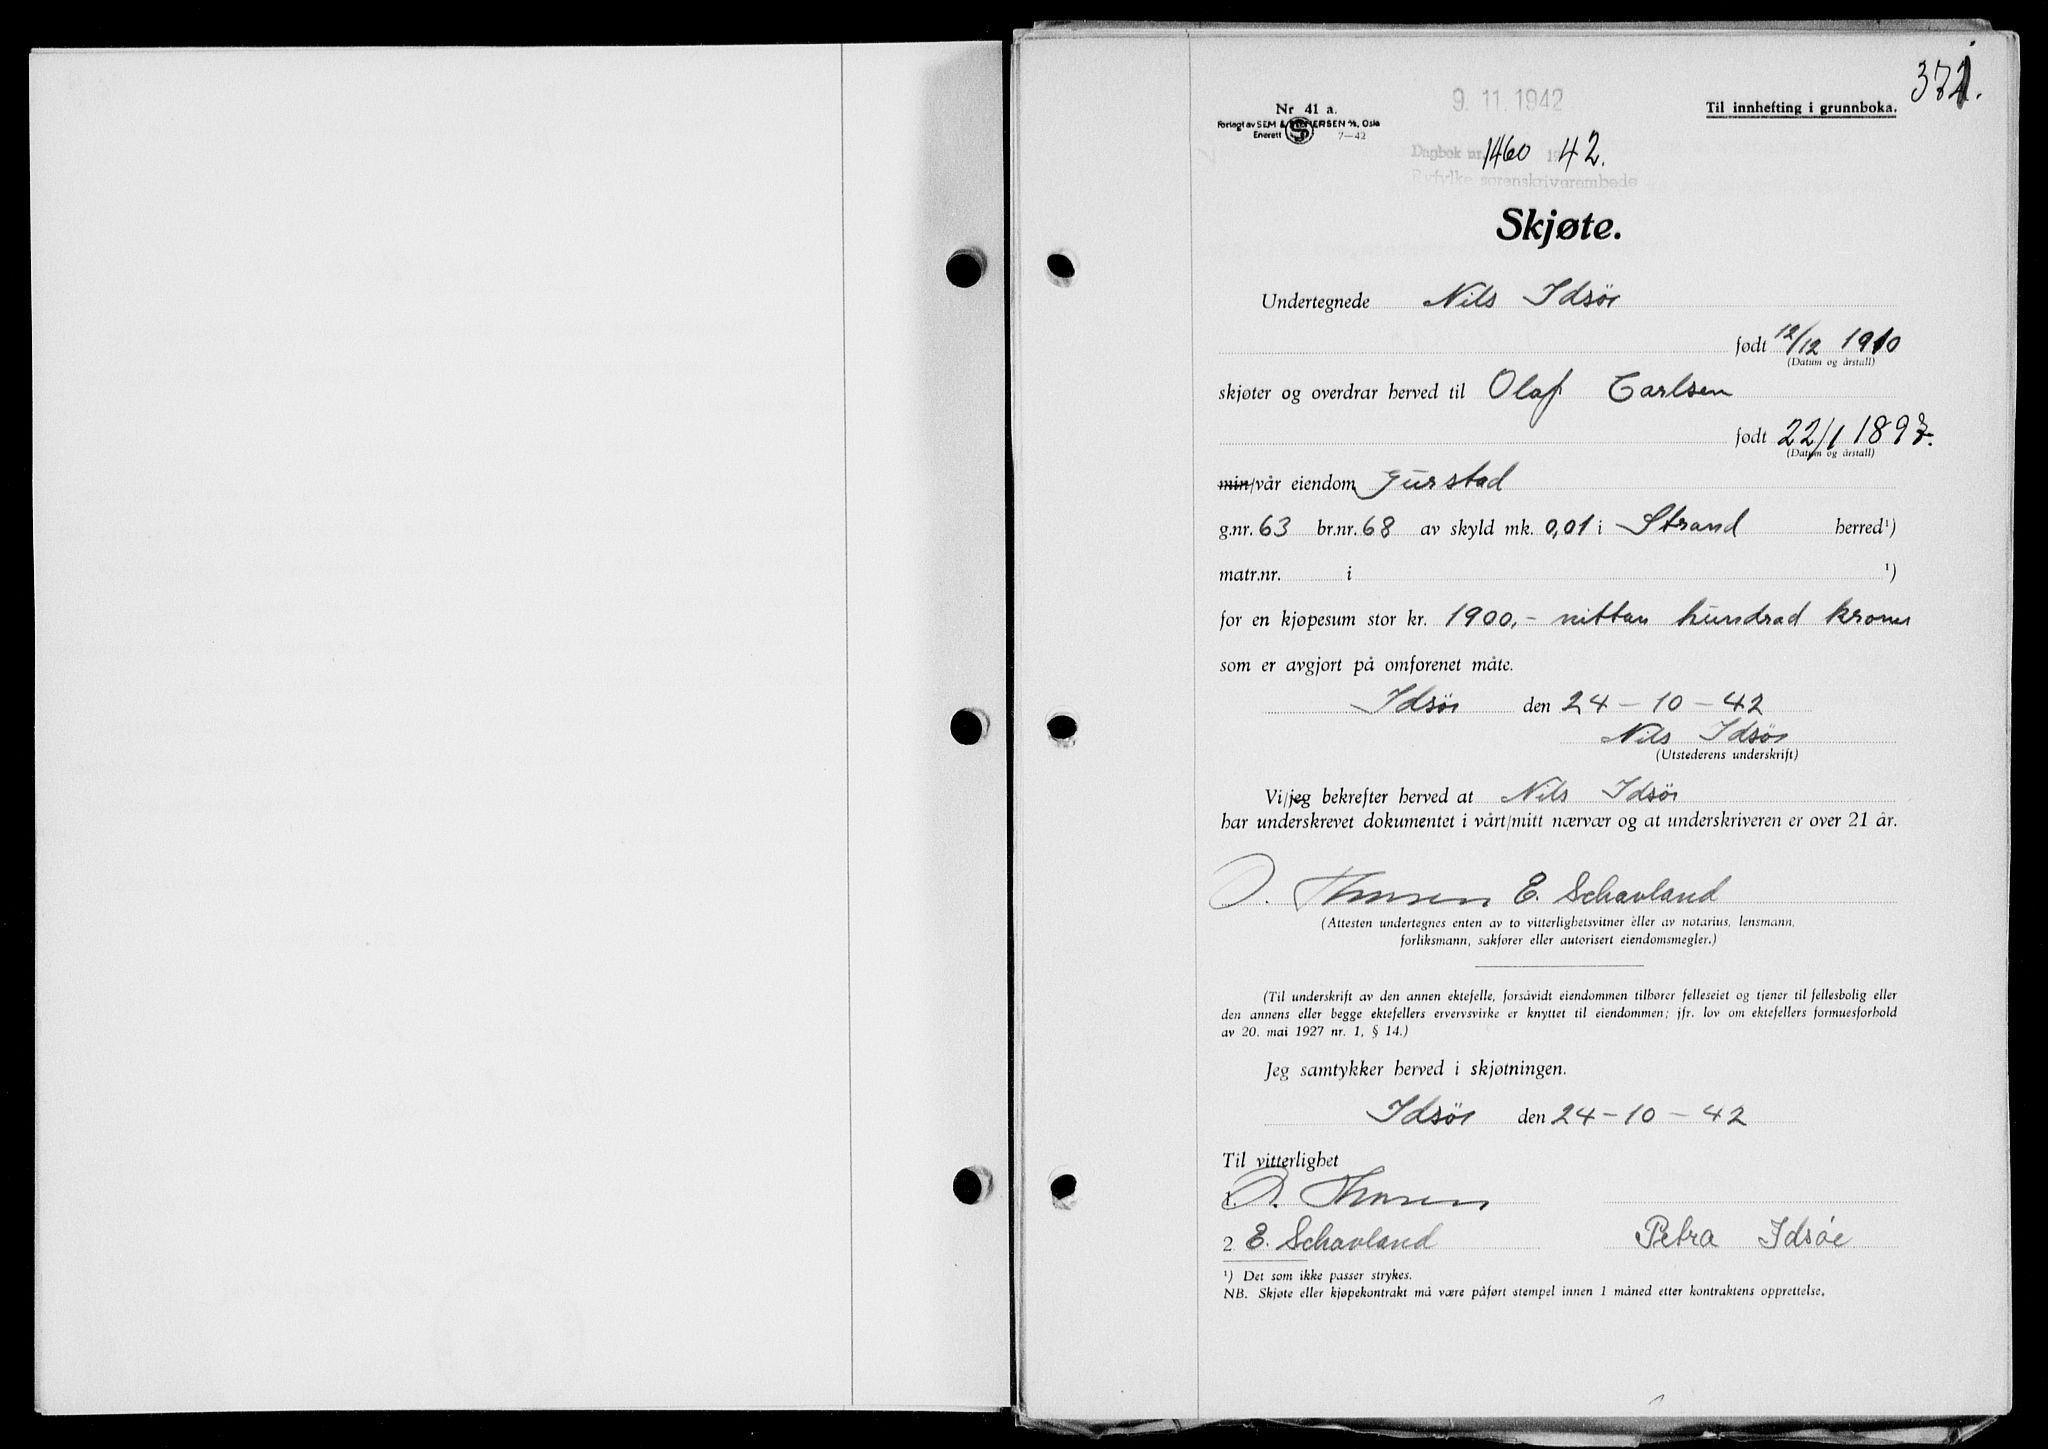 371.
9. 11. 1942
Nr 41 a.
Til innhefting i grunnboka.
Forlagt av SEM & STENERSEN A/S, Oslo
Enerett 7—42
Dagbok nr. 1460 1942.
Ryfylke sorenskriverembede
Skjøte.
Undertegnede Nils Idsøe
født 12/12 1910
(Datum og årstall)
skjøter og overdrar herved til Olaf Carlsen
født 22/1 1893.
(Datum og årstall)
min/vår eiendom Furstad
g.nr. 63 br.nr. 68 av skyld mk. 0,01 i Strand herred¹)
matr.nr. i ¹)
for en kjøpesum stor kr. 1900,- nittan hundrad kroner
som er avgjort på omforenet måte.
Idsøe den 24-10-42
Nils Idsøe
(Utstederens underskrift)
Vi/jeg bekrefter herved at Nils Idsøe
har underskrevet dokumentet i vårt/mitt nærvær og at underskriveren er over 21 år.
E. Schavland
(Attesten undertegnes enten av to vitterlighetsvitner eller av notarius, lensmann,
forliksmann, sakfører eller autorisert eiendomsmegler.)
(Til underskrift av den annen ektefelle, forsåvidt eiendommen tilhører felleseiet og tjener til fellesbolig eller
den annens eller begge ektefellers ervervsvirke er knyttet til eiendommen; jfr. lov om ektefellers formuesforhold
av 20. mai 1927 nr. 1, § 14.)
Jeg samtykker herved i skjøtningen.
Idsøe den 24-10-42
Til vitterlighet
1.
2 E. Schavland Petra Idsøe
¹) Det som ikke passer strykes.
NB. Skjøte eller kjøpekontrakt må være påført stempel innen 1 måned etter kontraktens opprettelse.